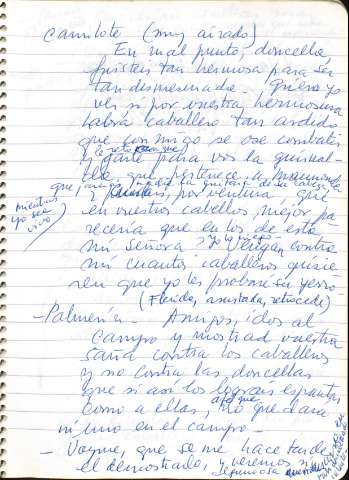 Camilote (muy airado)
En mal punto, doncella,
fuisteis tan hermosa para ser
tan desmesurada. Quiero yo
ver si por vuestra hermosura
habrá caballero tan ardido
que conmigo se ose combatir
y gane para vos la guirnal-
da que pertenece a Maimonda
que, amigo,
mientras
yo sea
vivo
y por ventura, que
en vuestros cabellos mejor pa-
recería que en los de esta
mi señora? y vengan contra
mí cuantos caballeros quisie-
ren que yo les probaré su yerro-
(Flérida, asustada, retrocede)
- Palmerín - Amigos, idos al
campo y mostrad vuestra
saña contra los caballeros
y no contra las doncellas
que si así los lográis espantar
como a ellas, no que dará
ninguno en el campo -
- Voyme, que se me hace tarde
el demostrarlo, y veremos si